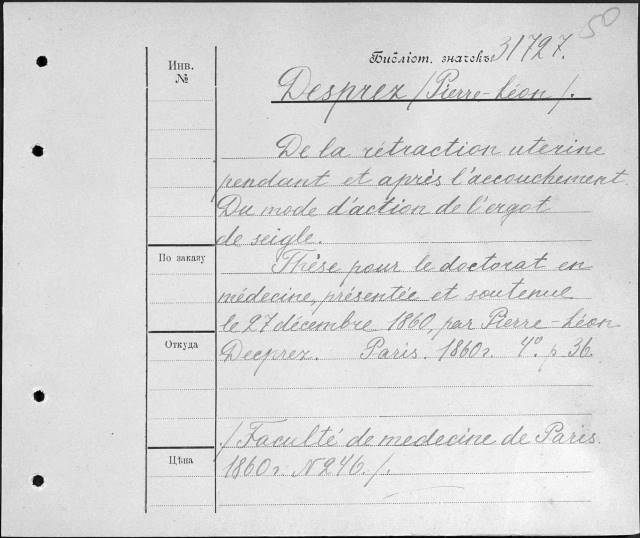 50
Библіот. значекъ 31727.
Инв. №
Desprez /Pierre-Léon/.
De la rétraction uterine
pendant et après l'accouchement.
Du mode d'action de l'ergot
de seigle.
По заказу
Thèse pour le doctorat en
médecine, présentée et soutenue
le 27 décembre 1860, par Pierre-Léon
Откуда
Decprez. Paris. 1860 г. 4º. p 36.
/Faculté de medecine de Paris.
Цѣна
1860 г. N 246./.